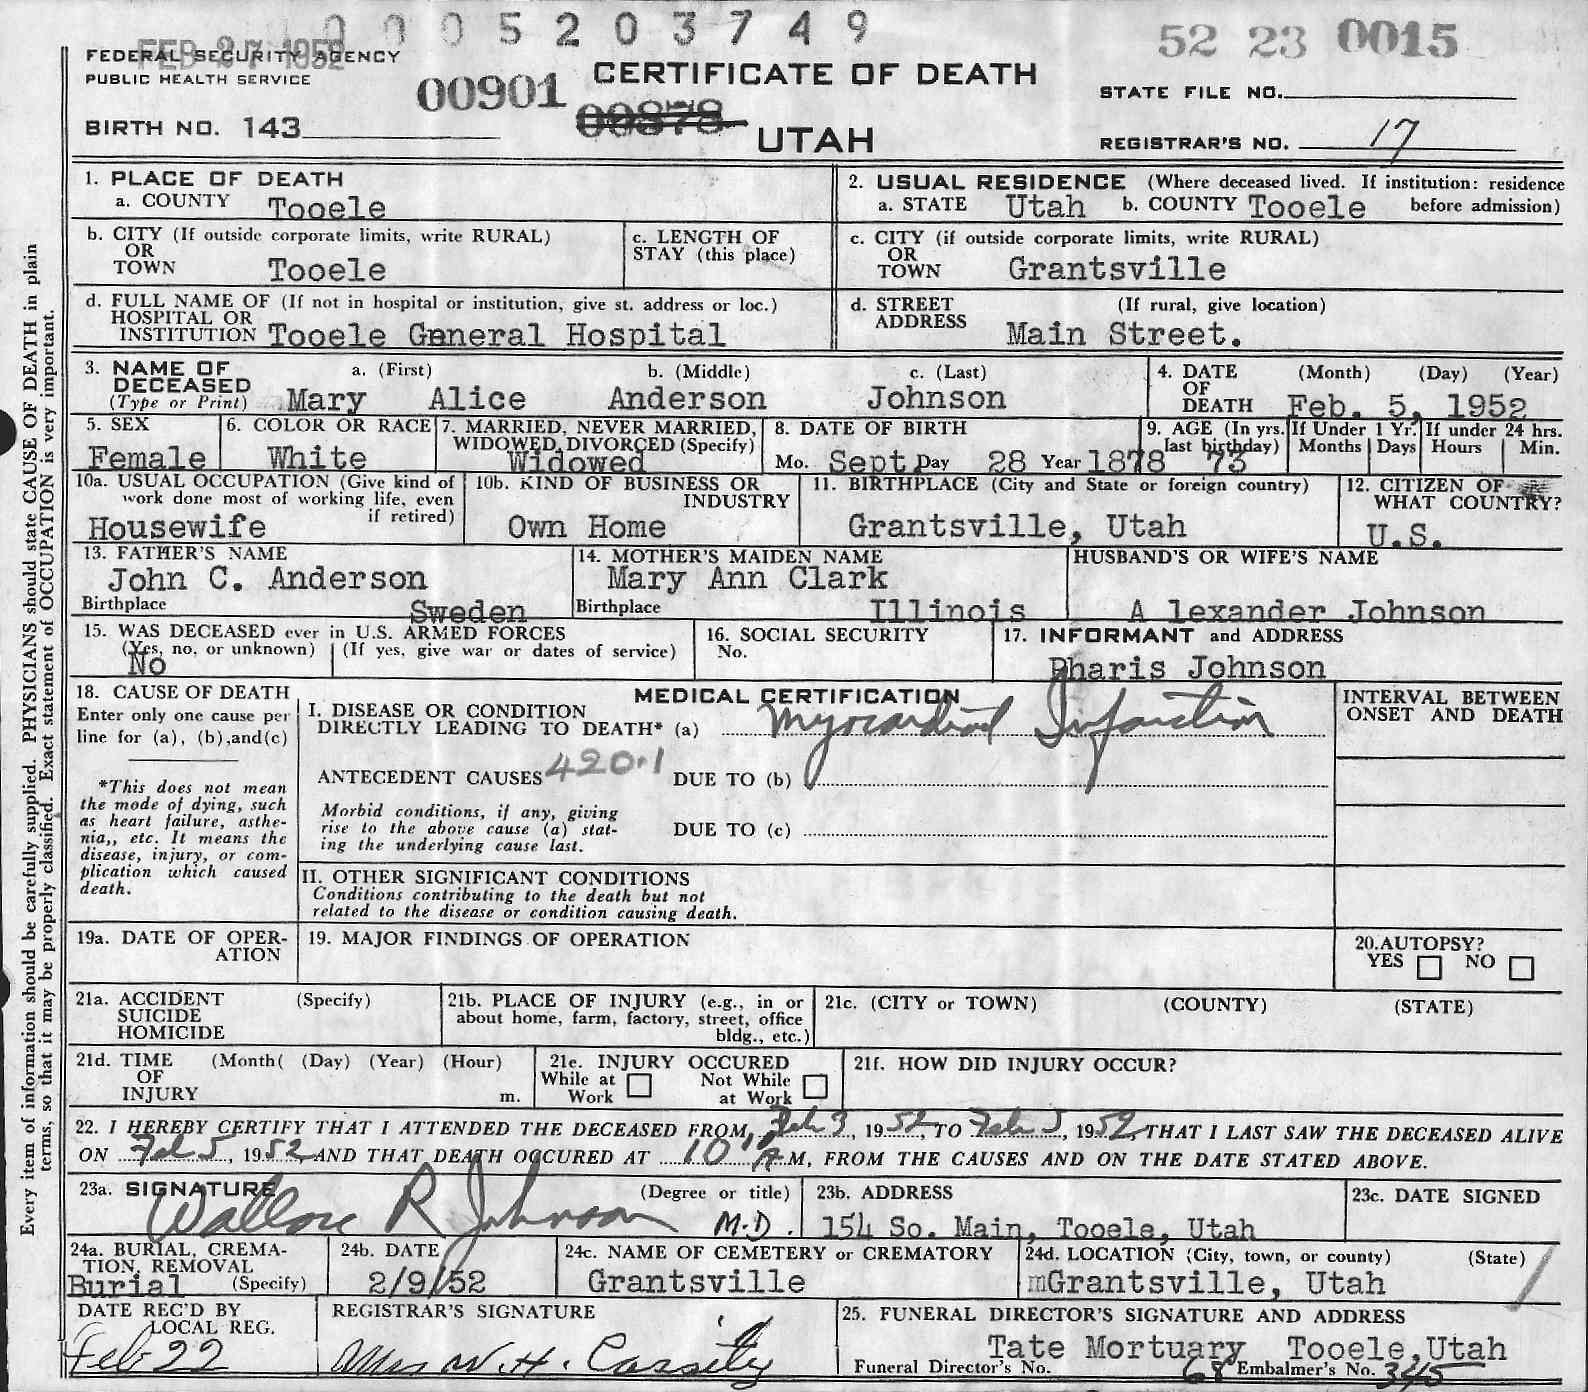 0005203749
FEB 27 1952
52 23 0015
FEDERAL SECURITY AGENCY
PUBLIC HEALTH SERVICE
00901
CERTIFICATE OF DEATH
STATE FILE NO.
BIRTH NO. 143
00878
UTAH
REGISTRAR'S NO. 17
1. PLACE OF DEATH
a. COUNTY Tooele
2. USUAL RESIDENCE (Where deceased lived. If institution: residence
a. STATE Utah b. COUNTY Tooele before admission)
b. CITY (If outside corporate limits, write RURAL)
OR
TOWN Tooele
c. LENGTH OF
STAY (this place)
c. CITY (if outside corporate limits, write RURAL)
OR
TOWN Grantsville
d. FULL NAME OF (If not in hospital or institution, give st. address or loc.)
HOSPITAL OR
INSTITUTION Tooele General Hospital
d. STREET (If rural, give location)
ADDRESS Main Street.
3. NAME OF a. (First) b. (Middle) c. (Last)
DECEASED
(Type or Print) Mary Alice Anderson Johnson
4. DATE (Month) (Day) (Year)
OF
DEATH Feb. 5, 1952
5. SEX
Female
6. COLOR OR RACE
White
7. MARRIED, NEVER MARRIED,
WIDOWED, DIVORCED (Specify)
Widowed
8. DATE OF BIRTH
Mo. Sept Day 28 Year 1878
9. AGE (In yrs.
last birthday)
73
If Under 1 Yr.
Months Days
If under 24 hrs.
Hours Min.
10a. USUAL OCCUPATION (Give kind of
work done most of working life, even
if retired)
Housewife
10b. KIND OF BUSINESS OR
INDUSTRY
Own Home
11. BIRTHPLACE (City and State or foreign country)
Grantsville, Utah
12. CITIZEN OF
WHAT COUNTRY?
U.S.
13. FATHER'S NAME
John C. Anderson
Birthplace Sweden
14. MOTHER'S MAIDEN NAME
Mary Ann Clark
Birthplace Illinois
HUSBAND'S OR WIFE'S NAME
A lexander Johnson
15. WAS DECEASED ever in U.S. ARMED FORCES
(Yes, no, or unknown) (If yes, give war or dates of service)
No
16. SOCIAL SECURITY
No.
17. INFORMANT and ADDRESS
Pharis Johnson
18. CAUSE OF DEATH
Enter only one cause per
line for (a), (b),and(c)
*This does not mean
the mode of dying, such
as heart failure, asthe-
nia,, etc. It means the
disease, injury, or com-
plication which caused
death.
MEDICAL CERTIFICATION
I. DISEASE OR CONDITION
DIRECTLY LEADING TO DEATH* (a) Myocardial Infarction
ANTECEDENT CAUSES 420.1 DUE TO (b)
Morbid conditions, if any, giving
rise to the above cause (a) stat-
ing the underlying cause last.
DUE TO (c)
INTERVAL BETWEEN
ONSET AND DEATH
II. OTHER SIGNIFICANT CONDITIONS
Conditions contributing to the death but not
related to the disease or condition causing death.
19a. DATE OF OPER-
ATION
19. MAJOR FINDINGS OF OPERATION
20.AUTOPSY?
YES NO
21a. ACCIDENT (Specify)
SUICIDE
HOMICIDE
21b. PLACE OF INJURY (e.g., in or
about home, farm, factory, street, office
bldg., etc.)
21c. (CITY or TOWN) (COUNTY) (STATE)
21d. TIME (Month( (Day) (Year) (Hour)
OF
INJURY m.
21e. INJURY OCCURED
While at Not While
Work at Work
21f. HOW DID INJURY OCCUR?
22. I HEREBY CERTIFY THAT I ATTENDED THE DECEASED FROM, Feb 3, 1952, TO Feb 5, 1952, THAT I LAST SAW THE DECEASED ALIVE
ON Feb 5, 1952, AND THAT DEATH OCCURED AT 10 A.M, FROM THE CAUSES AND ON THE DATE STATED ABOVE.
23a. SIGNATURE (Degree or title)
Wallace R Johnson M.D.
23b. ADDRESS
154 So. Main, Tooele, Utah
23c. DATE SIGNED
24a. BURIAL, CREMA-
TION, REMOVAL
Burial (Specify)
24b. DATE
2/9/52
24c. NAME OF CEMETERY or CREMATORY
Grantsville
24d. LOCATION (City, town, or county) (State)
mGrantsville, Utah
DATE REC'D BY
LOCAL REG.
Feb 22
REGISTRAR'S SIGNATURE
Mrs W. H. Cassity
25. FUNERAL DIRECTOR'S SIGNATURE AND ADDRESS
Tate Mortuary Tooele,Utah
Funeral Director's No. 68 Embalmer's No. 345
Every item of information should be carefully supplied. PHYSICIANS should state CAUSE OF DEATH in plain
terms, so that it may be properly classified. Exact statement of OCCUPATION is very important.